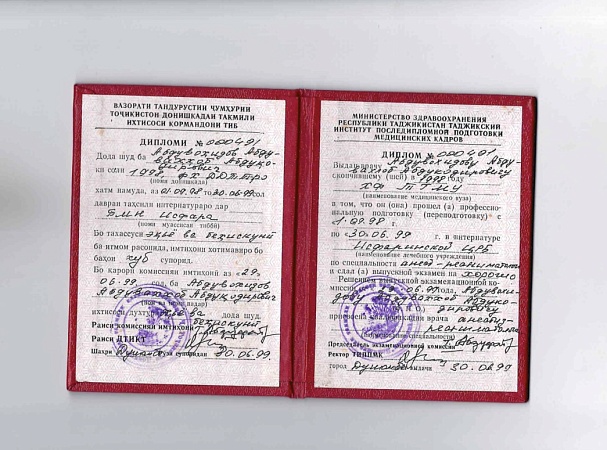 ВАЗОРАТИ ТАНДУРУСТИИ ҶУМҲУРИИ
ТОҶИКИСТОН ДОНИШКАДАИ ТАКМИЛИ
ИХТИСОСИ КОРМАНДОНИ ТИБ
ДИПЛОМИ № 000491
Дода шуд ба Абдувохидов Абду-
ваххоб Абдуко-
дирович
ки соли 1998
(номи донишкада)
хатм намуда, аз 01.09.98 то 30.06.99 сол
давраи таҳсили интернатураро дар
БМН Исфара
(номи муассисаи тиббӣ)
Бо тахассуси эҳьё ва беҳискунӣ
ба итмом расонида, имтиҳони хотимавиро бо
баҳои хуб супорид.
Бо қарори комиссияи имтиҳонӣ аз «29.
06.99 сол ба Абдувохидов
Абдуваххоб Абдукодирович
(ном ва номи падар)
ихтисоси духтури эҳьё ва дода шуд.
беҳискунӣ
Раиси комиссияи имтиҳонӣ
Раиси ДТИКТ
Шаҳри Душанбе Рӯзи супоридан 30.06.99
МИНИСТЕРСТВО ЗДРАВООХРАНЕНИЯ
РЕСПУБЛИКИ ТАДЖИКИСТАН ТАДЖИКСКИЙ
ИНСТИТУТ ПОСЛЕДИПЛОМНОЙ ПОДГОТОВКИ
МЕДИЦИНСКИХ КАДРОВ
ДИПЛОМ № 000491
Выдан врачу Абдувохидову Абду-
ваххоб Абдукодировичу
окончившему (шей) в 1998 году
ХФ ТГМУ
(наименование медицинского вуза)
в том, что он (она) прошел (а) профессио-
нальную подготовку (переподготовку) с
1.09.98
по «30.06.99 г. в интернатуре
Исфаринской ЦРБ
(наименование лечебного учреждения)
по специальности анест-реаниматолог
и сдал (а) выпускной экзамен на хорошо
Решением выпускной экзаменационной ко-
миссии 29.06.99 года, Абдувохи-
дову Абдуваххоб Абдуко-
дировичу
присвоена квалификация врача анест-
реаниматолог
(наименование специальности)
Председатель экзаменационной комиссии
Ректор ТИППМК
город Душанбе выдачи 30.06.99